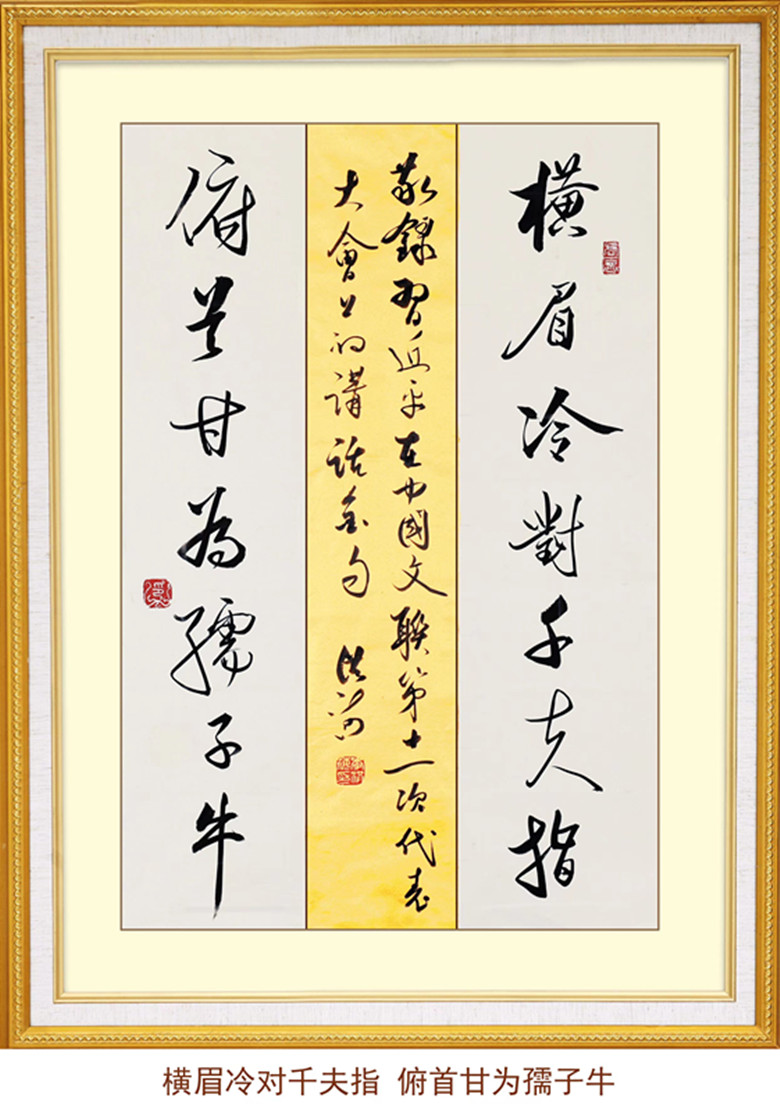 橫眉冷對千夫指
敬録習近平在中國文聯第十一次代表
大會上的講話金句
俯首甘為孺子牛
横眉冷对千夫指 俯首甘为孺子牛